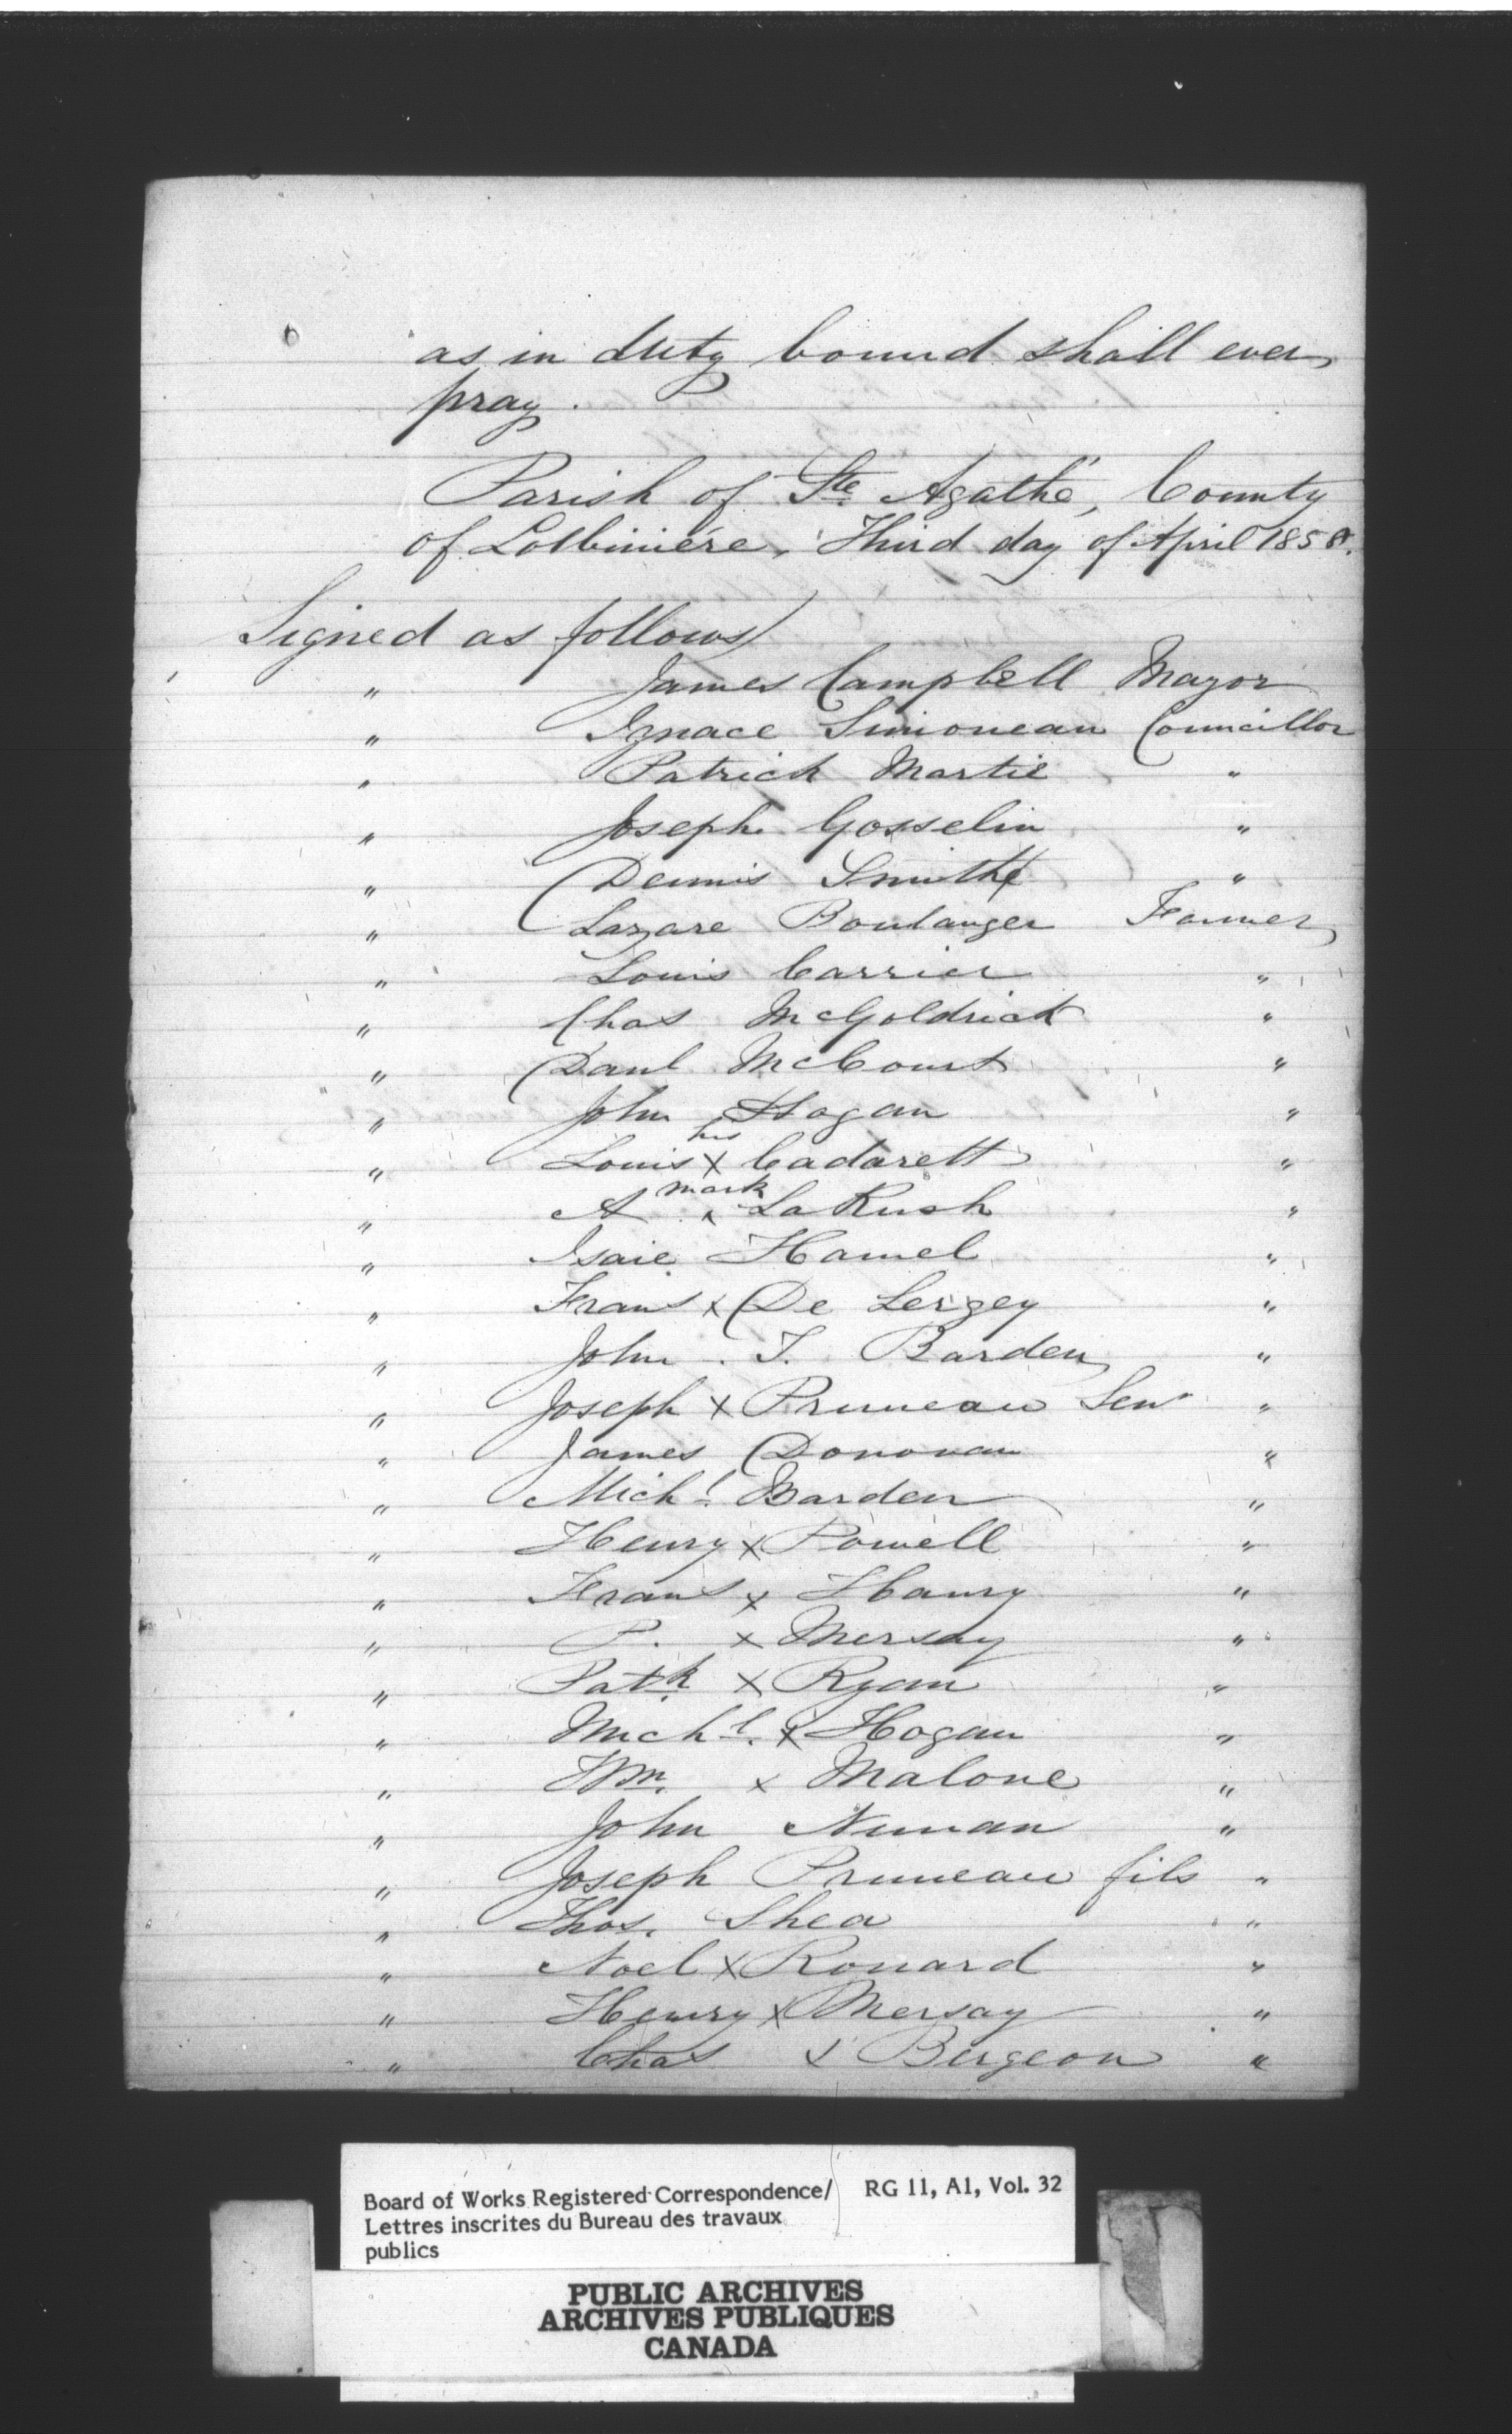 as in duty bound shall ever
pray.
Parish of Ste Agathé, County
of Lotbiniére, Third day of April 1858.
Signed as follows
" James Campbell Mayor
" Ignace Simoneau Councillor
" Patrick Martie "
" Joseph Gosselin "
" Dennis Smithe "
" Lazare Boulanger Farmer
" Louis Carrier "
" Chas McGoldrick "
" Danl McCourt "
" John Hogan "
his
" Louis x Cadarett "
mark
" A x LaRush "
" Isaie Hamel "
" Frans x De Lergey "
" John . T. Barden "
" Joseph x Pruneau Senr "
" James Donovan "
" Michl Barden "
" Henry x Powell "
" Frans x Hanry "
" P. x Mersay "
" Patk x Ryan "
" Michl. x Hogan "
" Wm. x Malone "
" John Nunan "
" Joseph Pruneau fils "
" Thos. Shea "
" Noel x Ronard "
" Henry x Mersay "
" Chas x Bergeon "
Board of Works Registered Correspondence/ RG 11, A1, Vol. 32
Lettres inscrites du Bureau des travaux
publics
PUBLIC ARCHIVES
ARCHIVES PUBLIQUES
CANADA